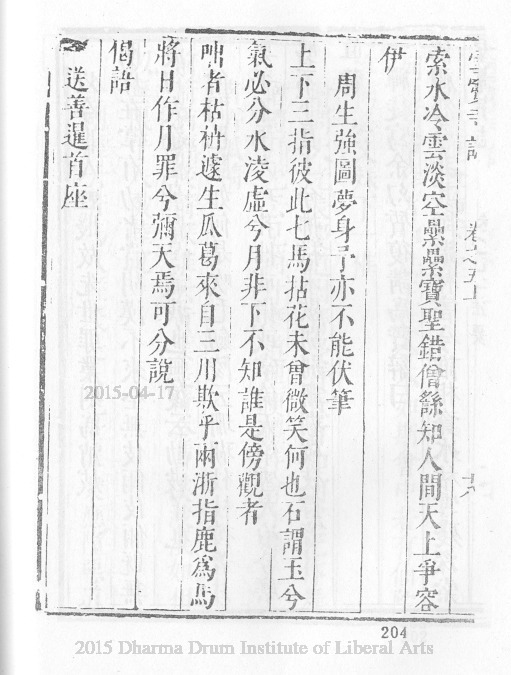 卷之五上
索水冷雲淡空纍纍寶聖錯僧繇知人間天上爭容
伊
周生強圖夢身予亦不能伏筆
上下三指彼此七馬拈花未曾微笑何也石謂玉兮
氣必分水淩虛兮月非下不知誰是傍觀者
咄者枯衲遽生瓜葛來自三川欺乎兩浙指鹿為馬
將日作月罪兮彌天焉可分說
偈語
送善暹首座
2015-04-17
204
2015 Dharma Drum Institute of Liberal Arts